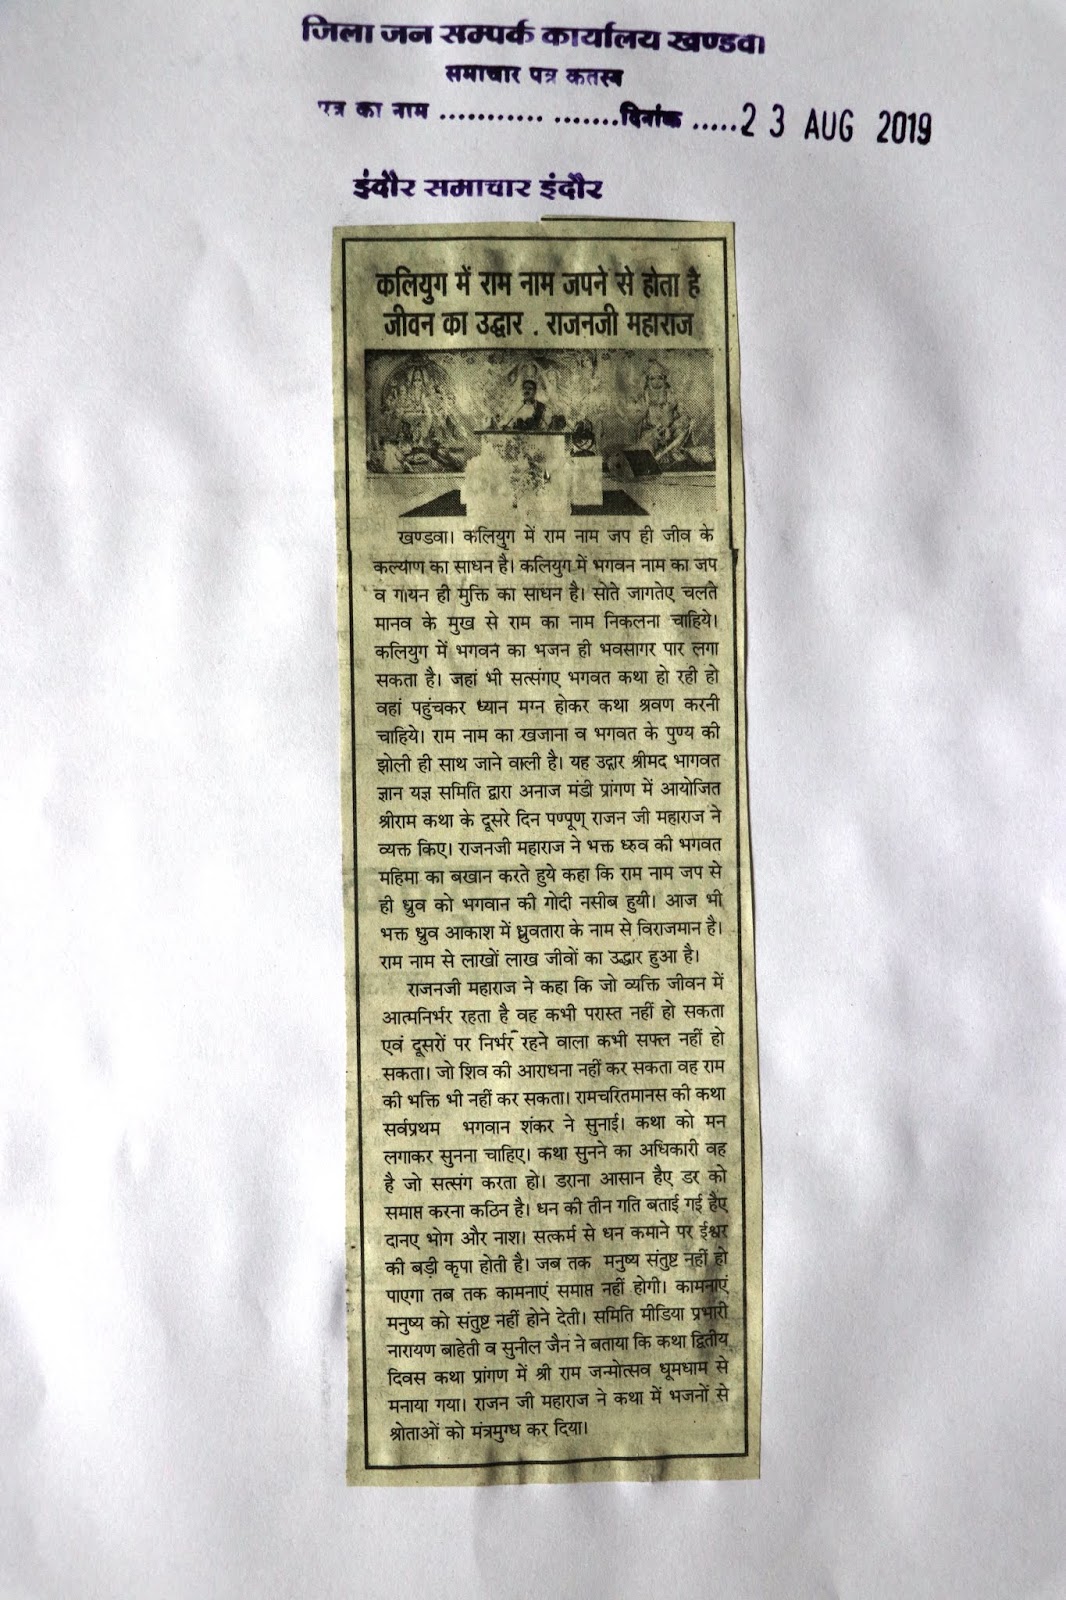 जिला जन सम्पर्क कार्यालय खण्डवा
समाचार पत्र कतरन
पत्र का नाम ........... .......दिनांक .....23 AUG 2019
इंदौर समाचार इंदौर
कलियुग में राम नाम जपने से होता है
जीवन का उद्धार . राजनजी महाराज
खण्डवा। कलियुग में राम नाम जप ही जीव के
कल्याण का साधन है। कलियुग में भगवन नाम का जप
व गायन ही मुक्ति का साधन है। सोते जागतेए चलते
मानव के मुख से राम का नाम निकलना चाहिये।
कलियुग में भगवन का भजन ही भवसागर पार लगा
सकता है। जहां भी सत्संगए भगवत कथा हो रही हो
वहां पहुंचकर ध्यान मग्न होकर कथा श्रवण करनी
चाहिये। राम नाम का खजाना व भगवत के पुण्य की
झोली ही साथ जाने वाली है। यह उद्गार श्रीमद भागवत
ज्ञान यज्ञ समिति द्वारा अनाज मंडी प्रांगण में आयोजित
श्रीराम कथा के दूसरे दिन पण्पूण् राजन जी महाराज ने
व्यक्त किए। राजनजी महाराज ने भक्त ध्रुव की भगवत
महिमा का बखान करते हुये कहा कि राम नाम जप से
ही ध्रुव को भगवान की गोदी नसीब हुयी। आज भी
भक्त ध्रुव आकाश में ध्रुवतारा के नाम से विराजमान है।
राम नाम से लाखों लाख जीवों का उद्धार हुआ है।
राजनजी महाराज ने कहा कि जो व्यक्ति जीवन में
आत्मनिर्भर रहता है वह कभी परास्त नहीं हो सकता
एवं दूसरों पर निर्भर रहने वाला कभी सफ्ल नहीं हो
सकता। जो शिव की आराधना नहीं कर सकता वह राम
की भक्ति भी नहीं कर सकता। रामचरितमानस की कथा
सर्वप्रथम भगवान शंकर ने सुनाई। कथा को मन
लगाकर सुनना चाहिए। कथा सुनने का अधिकारी वह
है जो सत्संग करता हो। डराना आसान हैए डर को
समाप्त करना कठिन है। धन की तीन गति बताई गई हैए
दानए भोग और नाश। सत्कर्म से धन कमाने पर ईश्वर
की बड़ी कृपा होती है। जब तक मनुष्य संतुष्ट नहीं हो
पाएगा तब तक कामनाएं समाप्त नहीं होगी। कामनाएं
मनुष्य को संतुष्ट नहीं होने देती। समिति मीडिया प्रभारी
नारायण बाहेती व सुनील जैन ने बताया कि कथा द्वितीय
दिवस कथा प्रांगण में श्री राम जन्मोत्सव धूमधाम से
मनाया गया। राजन जी महाराज ने कथा में भजनों से
श्रोताओं को मंत्रमुग्ध कर दिया।